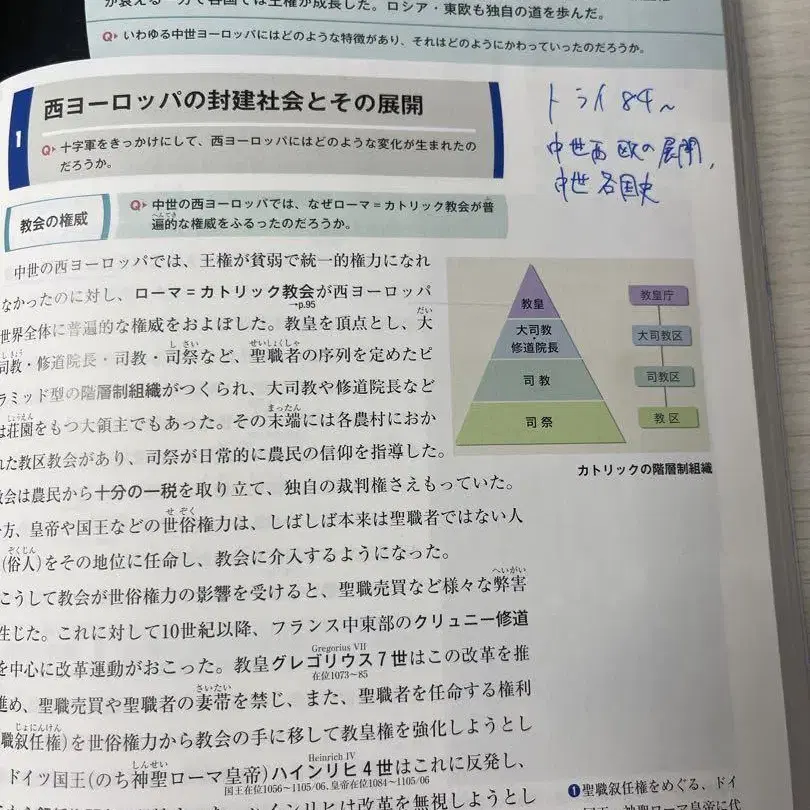 が衰える一方で各国では王権が成長した。ロシア・東欧も独自の道を歩んだ。
Q▶ いわゆる中世ヨーロッパにはどのような特徴があり、それはどのようにかわっていったのだろうか。
1 西ヨーロッパの封建社会とその展開
Q▶ 十字軍をきっかけにして、西ヨーロッパにはどのような変化が生まれたの
だろうか。
トライ 84~
中世西欧の展開,
中世各国史
教会の権威
Q▶ 中世の西ヨーロッパでは、なぜローマ=カトリック教会が普
遍的な権威をふるったのだろうか。
へんてき
中世の西ヨーロッパでは、王権が貧弱で統一的権力になれ
なかったのに対し、ローマ=カトリック教会が西ヨーロッパ
→p.95
世界全体に普遍的な権威をおよぼした。教皇を頂点とし、大
だい
司教・修道院長・司教・司祭など、聖職者の序列を定めたピ
しきょう しさい せいしょくしゃ
ラミッド型の階層制組織がつくられ、大司教や修道院長など
は荘園をもつ大領主でもあった。その末端には各農村におか
しょうえん まったん
れた教区教会があり、司祭が日常的に農民の信仰を指導した。
教会は農民から十分の一税を取り立て、独自の裁判権さえもっていた。
方、皇帝や国王などの世俗権力は、しばしば本来は聖職者ではない人
せぞく
(俗人)をその地位に任命し、教会に介入するようになった。
ぞくじん
こうして教会が世俗権力の影響を受けると、聖職売買など様々な弊害
へいがい
生じた。これに対して10世紀以降、フランス中東部のクリュニー修道
を中心に改革運動がおこった。教皇グレゴリウス7世はこの改革を推
Gregorius VII
在位1073~85
進め、聖職売買や聖職者の妻帯を禁じ、また、聖職者を任命する権利
さいたい
職叙任権)を世俗権力から教会の手に移して教皇権を強化しようとし
じょにんけん
ドイツ国王(のち神聖ローマ皇帝)ハインリヒ4世はこれに反発し、
しんせい
Heinrich IV
国王在位1056~1105/06、皇帝在位1084~1105/06
ハインリヒは改革を無視しようとし
教皇
大司教・
修道院長
司教
司祭
教皇庁
大司教区
司教区
教区
カトリックの階層制組織
❶聖職叙任権をめぐる、ドイ